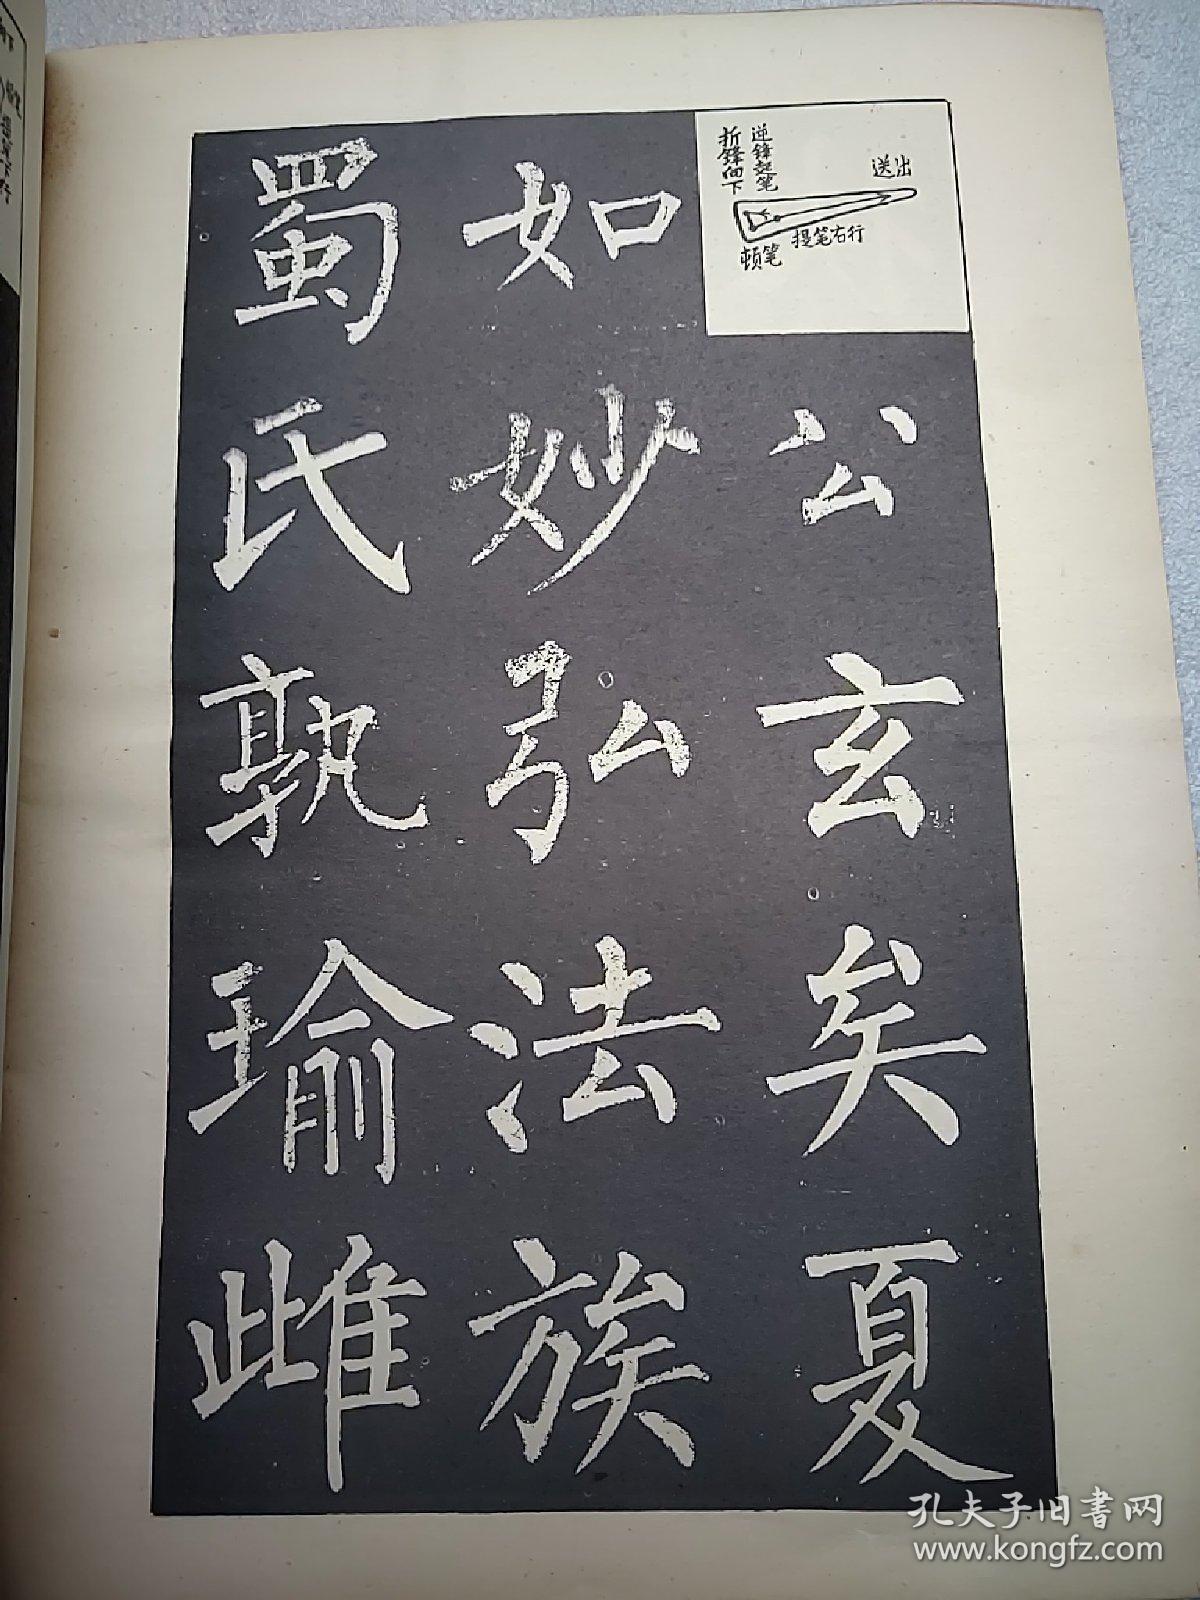 逆锋起笔
折锋向下
送出
提笔右行
顿笔
公玄矣夏
如妙弘法族
蜀氏孰瑜雌
孔夫子旧书网
www.kongfz.com